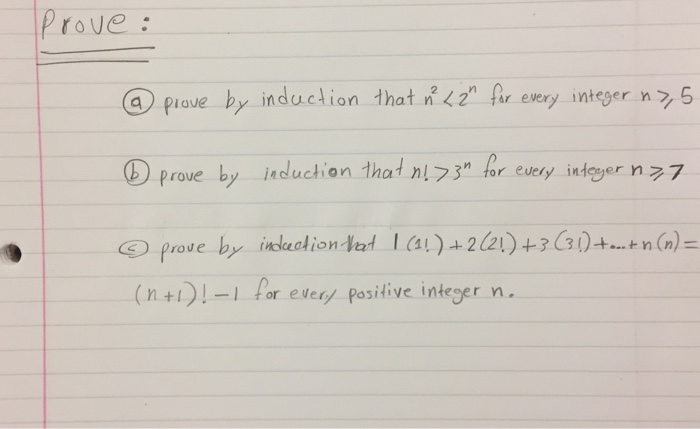 Prove :
(a) prove by induction that n² < 2ⁿ for every integer n ⩾ 5
(b) prove by induction that n! > 3ⁿ for every integer n ⩾ 7
(c) prove by induction that 1(1!) + 2(2!) + 3(3!) + ... + n(n) =
(n+1)! - 1 for every positive integer n.